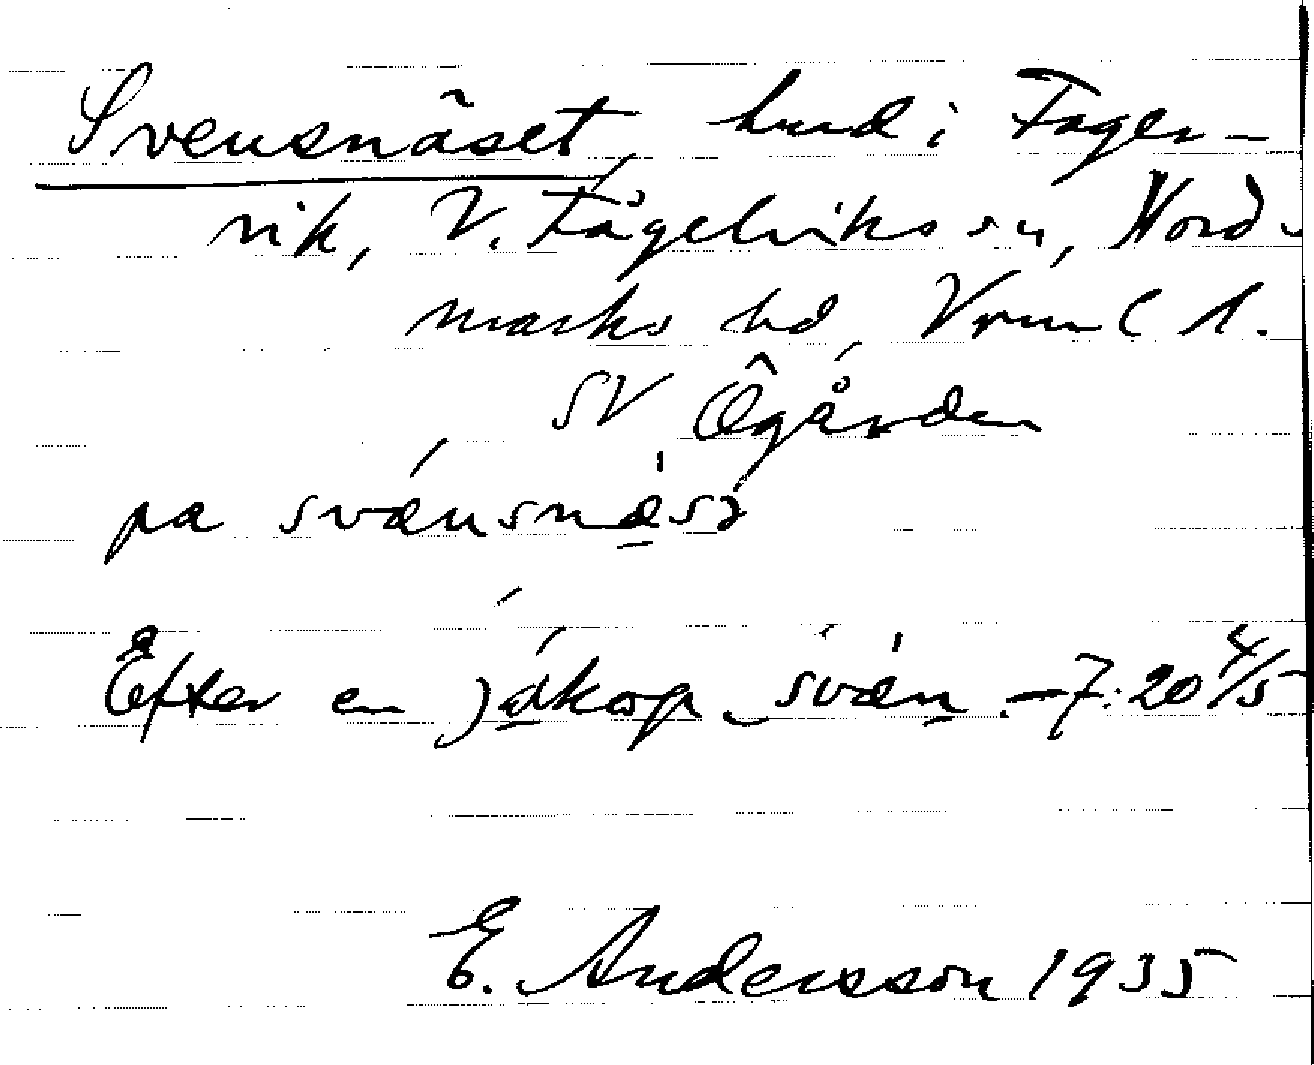 Svensnäset, hmd i Fager-
vik, V. Fågelviks sn, Nord-
marks hd, Vrml l.
SV Ögården
pa sváensnæ̀sə
Efter en jákɔp sváen. – 7:20 4/5
E. Andersson 1935